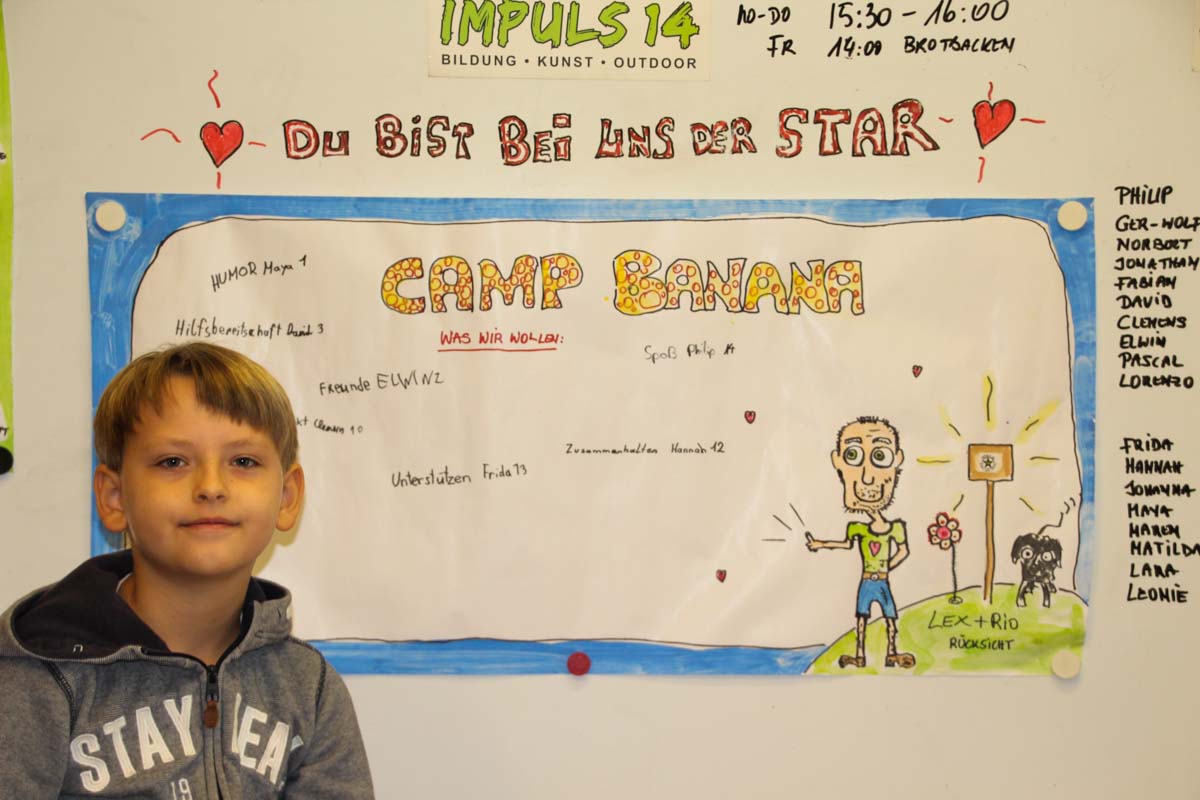 IMPULS 14
BILDUNG • KUNST • OUTDOOR
MO-DO 15:30 - 16:00
FR 14:00 BROTBACKEN
DU BIST BEI UNS DER STAR
CAMP BANANA
WAS WIR WOLLEN:
HUMOR Maya 1
Hilfsbereitschaft David 3
Spoß Philip 14
Freunde ELWIN 2
kt Clemens 10
Zusammenhalten Hannah 12
Unterstützen Frida 13
LEX + RIO
RÜCKSICHT
PHILIP
GER-WOLF
NORBERT
JONATHAN
FABIAN
DAVID
CLEMENS
ELWIN
PASCAL
LORENZO
FRIDA
HANNAH
JOHANNA
MAYA
MAREN
MATILDA
LARA
LEONIE
STAY REA
19